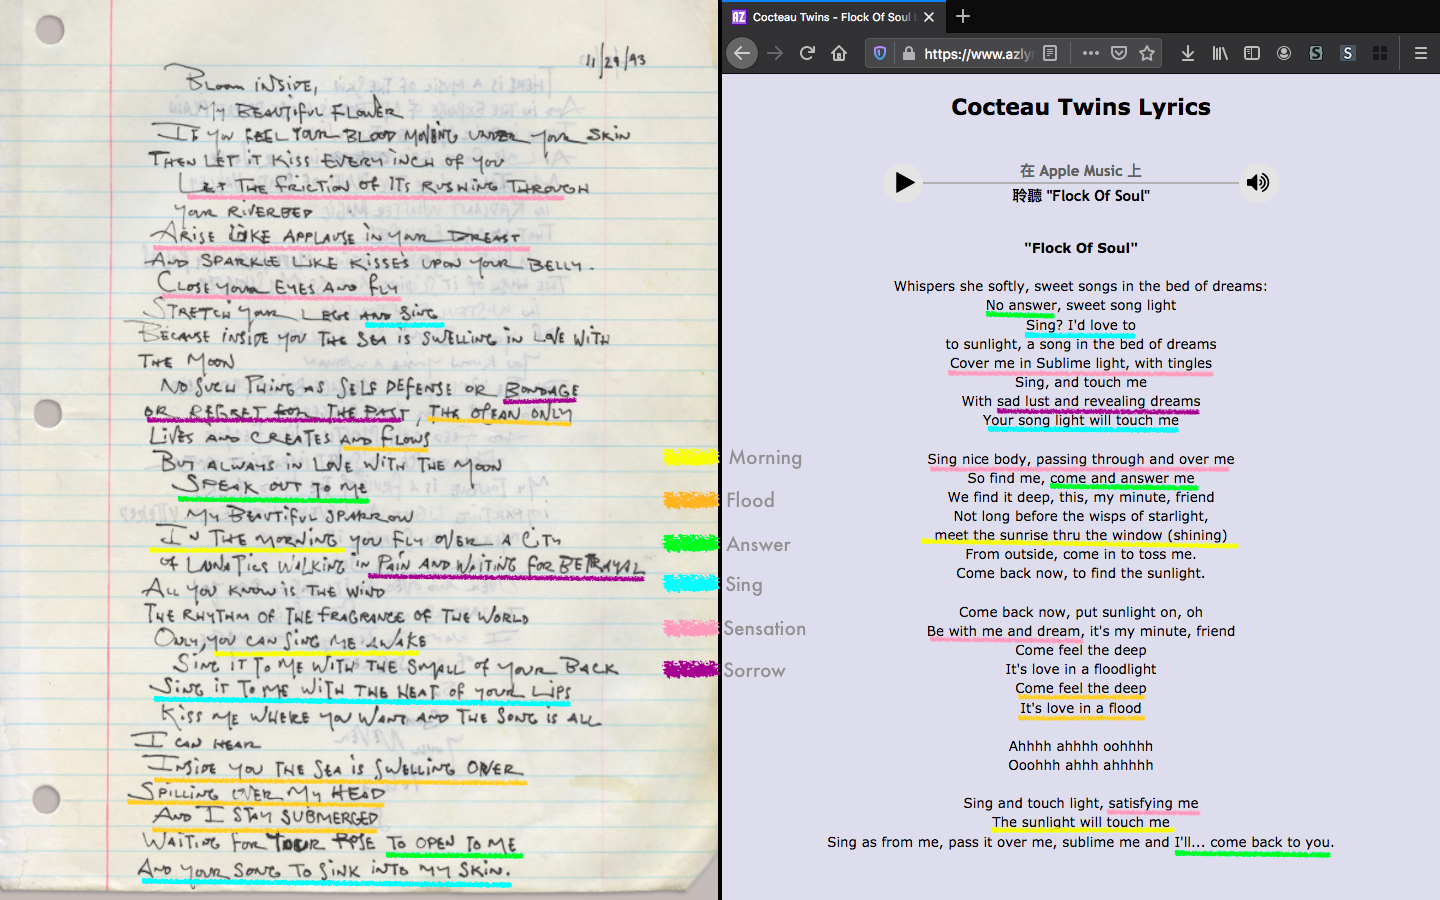 11/29/93
Bloom inside,
My beautiful flower
If you feel your blood moving under your skin
Then let it kiss every inch of you
Let the friction of its rushing through
your riverbed
Arise like applause in your breast
And sparkle like kisses upon your belly.
Close your eyes and fly
Stretch your legs and sing
Because inside you the sea is swelling in love with
the moon
No such thing as self defense or bondage
or regret for the past, the ocean only
lives and creates and flows
But always in love with the moon
Speak out to me
My beautiful sparrow
In the morning you fly over a city
of lunatics walking in pain and waiting for betrayal
All you know is the wind
The rhythm of the fragrance of the world
Only, you can sing me awake
Sing it to me with the small of your back
Sing it to me with the heat of your lips
Kiss me where you want and the song is all
I can hear
Inside you the sea is swelling over
Spilling over my head
And I stay submerged
Waiting for your to open to me
And your song to sink into my skin.
Morning
Flood
Answer
Sing
Sensation
Sorrow
AZ Cocteau Twins - Flock Of Soul L
https://www.azly
Cocteau Twins Lyrics
在 Apple Music 上
聆聽 "Flock Of Soul"
"Flock Of Soul"
Whispers she softly, sweet songs in the bed of dreams:
No answer, sweet song light
Sing? I'd love to
to sunlight, a song in the bed of dreams
Cover me in Sublime light, with tingles
Sing, and touch me
With sad lust and revealing dreams
Your song light will touch me
Sing nice body, passing through and over me
So find me, come and answer me
We find it deep, this, my minute, friend
Not long before the wisps of starlight,
meet the sunrise thru the window (shining)
From outside, come in to toss me.
Come back now, to find the sunlight.
Come back now, put sunlight on, oh
Be with me and dream, it's my minute, friend
Come feel the deep
It's love in a floodlight
Come feel the deep
It's love in a flood
Ahhhh ahhhh oohhhh
Ooohhh ahhh ahhhhh
Sing and touch light, satisfying me
The sunlight will touch me
Sing as from me, pass it over me, sublime me and I'll... come back to you.